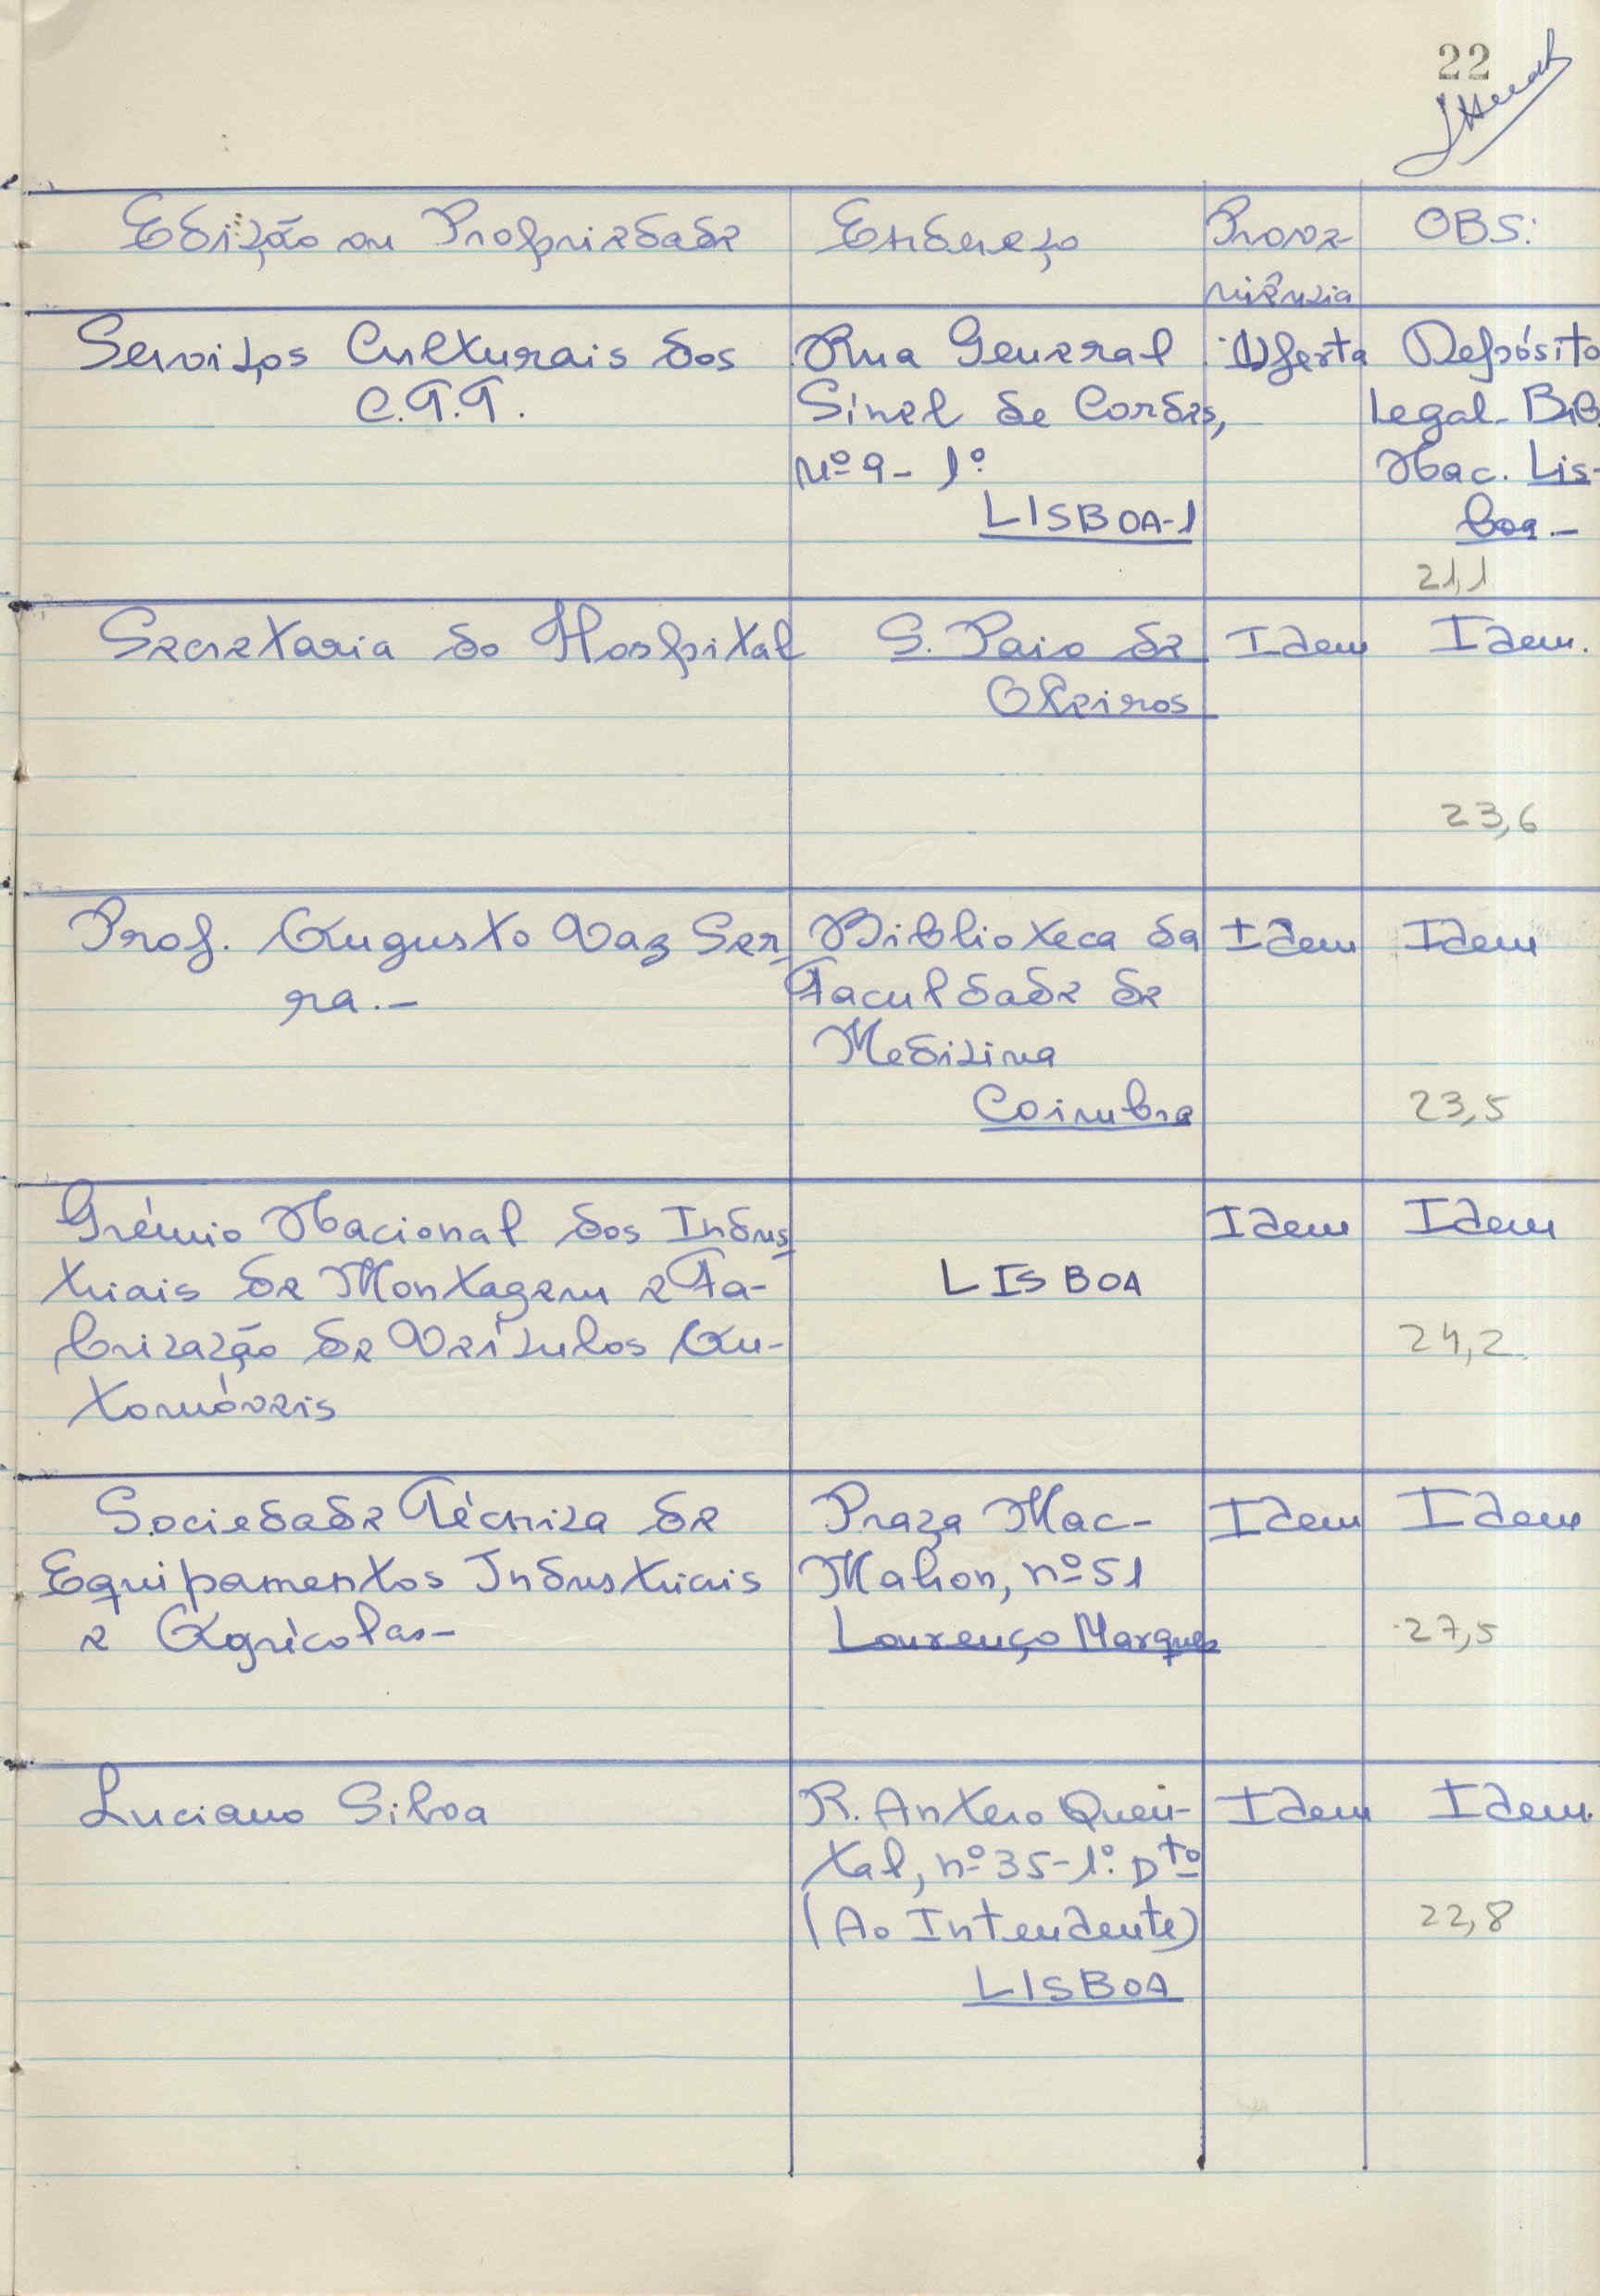 22
Edição ou Propriedade
Endereço
Prove-
niência
OBS:
Serviços Culturais dos
C.T.T.
Rua General
Sinel de Cordes,
nº 9 - 1º
LISBOA-1
Oferta
Depósito
Legal - Bib.
Nac. Lis-
boa.-
21,1
Secretaria do Hospital
S. Paio de
Oleiros
Idem
Idem.
23,6
Prof. Augusto Vaz Ser-
ra.-
Biblioteca da
Faculdade de
Medicina
Coimbra
Idem
Idem
23,5
Grémio Nacional dos Indus-
triais de Montagem e Fa-
bricação de Veículos Au-
tomóveis
LISBOA
Idem
Idem
24,2
Sociedade Técnica de
Equipamentos Industriais
e Agrícolas-
Praça Mac-
Mahon, nº 51
Lourenço Marques
Idem
Idem
27,5
Luciano Silva
R. Antero Quen-
tal, nº 35-1º. Dtº
(Ao Intendente)
LISBOA
Idem
Idem.
22,8